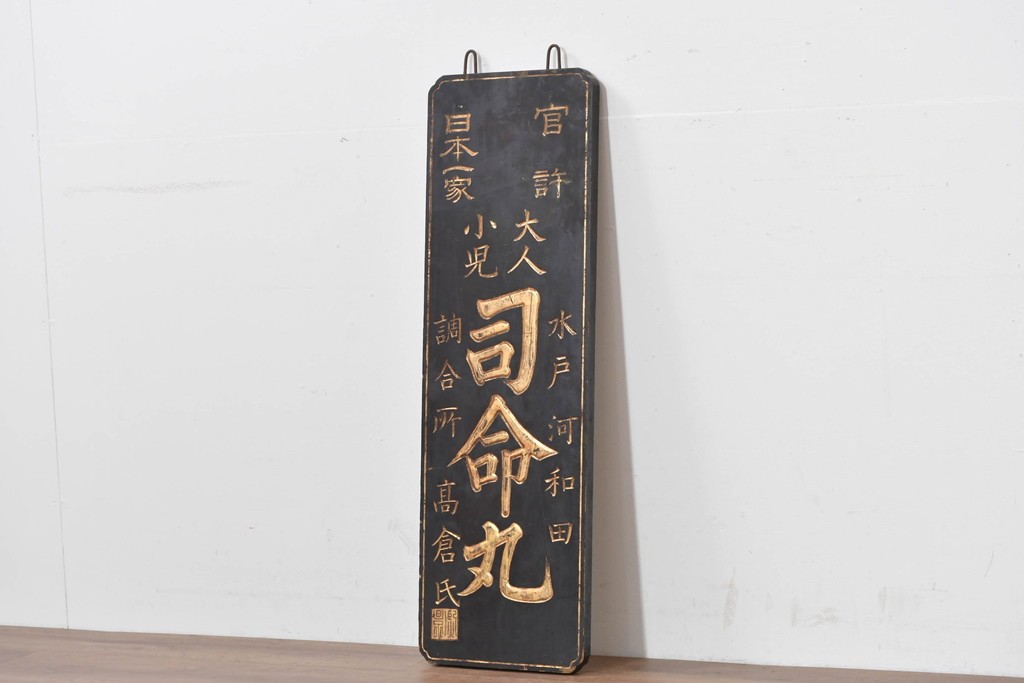 官許
日本一家
大人
小児
司命丸
水戸河和田
調合所 高倉氏